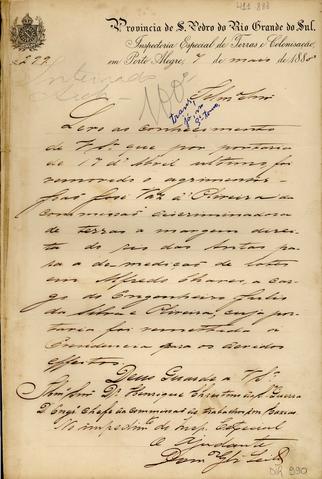 411 888
Provincia de S. Pedro do Rio Grande do Sul.
Inspectoria Especial de Terras e Colonisação,
em Porto Alegre, 7 de maio de 1888
Nº 299
100
Illmo Snr
Levo ao conhecimento
de V. Sª que por portaria
de 17 d'Abril ultimo, foi
removido o agrimensor
José Vaz Pereira da
Commissão discriminadora
de terras a margem direita
do rio das Antas para
a de medição de lotes
em Alfredo Chaves, a cargo
do Engenheiro Julio
da Silva e Oliveira, cuja portaria
foi remettida a
para os devidos
effeitos.
Deus Guarde a V. Sª
Illmo Snr Dr Henrique Christino da Guerra
D. Engº Chefe da Commissão de trabalhos em
No impedimto do Insp. Especial
O Ajudante
DIR 990